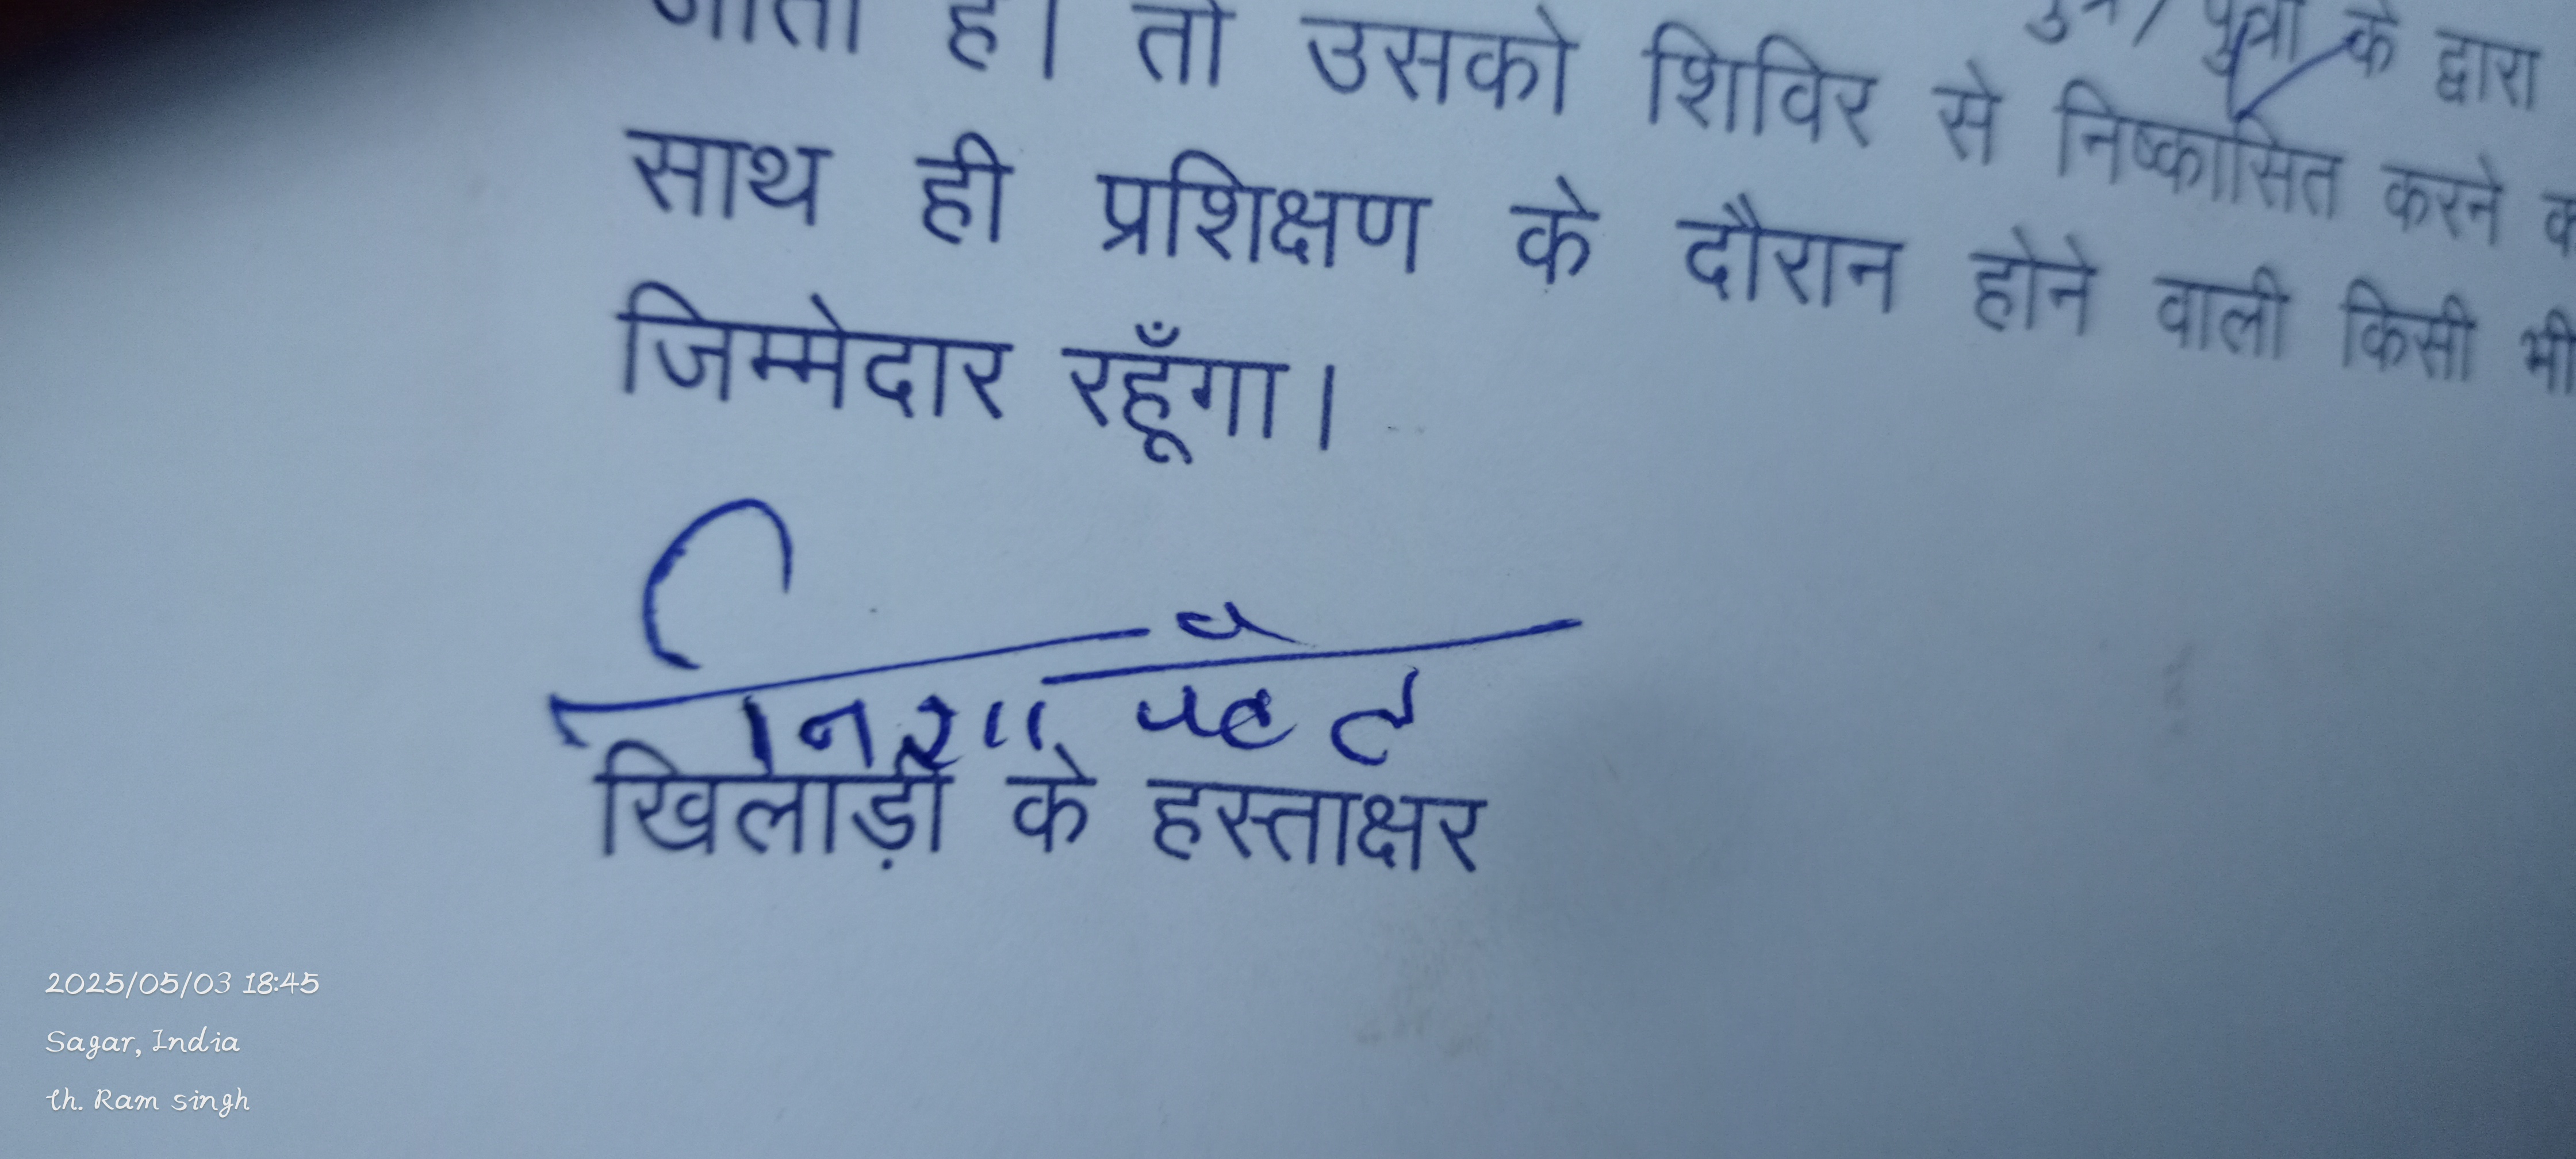 पुत्री के द्वारा
जाता है। तो उसको शिविर से निष्कासित करने
साथ ही प्रशिक्षण के दौरान होने वाली किसी भी
जिम्मेदार रहूँगा।
निशा पटेल
खिलाड़ी के हस्ताक्षर
2025/05/03 18:45
Sagar, India
th. Ram singh